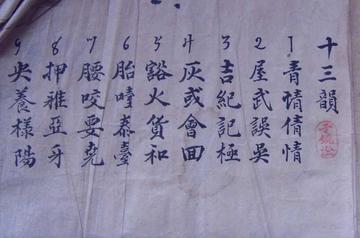 十三韻
1 青情倩情
2 屋武誤吳
3 吉紀記極
4 灰或會回
5 豁火貨和
6 胎噎泰臺
7 腰咬要堯
8 押雅亞牙
9 央養樣陽